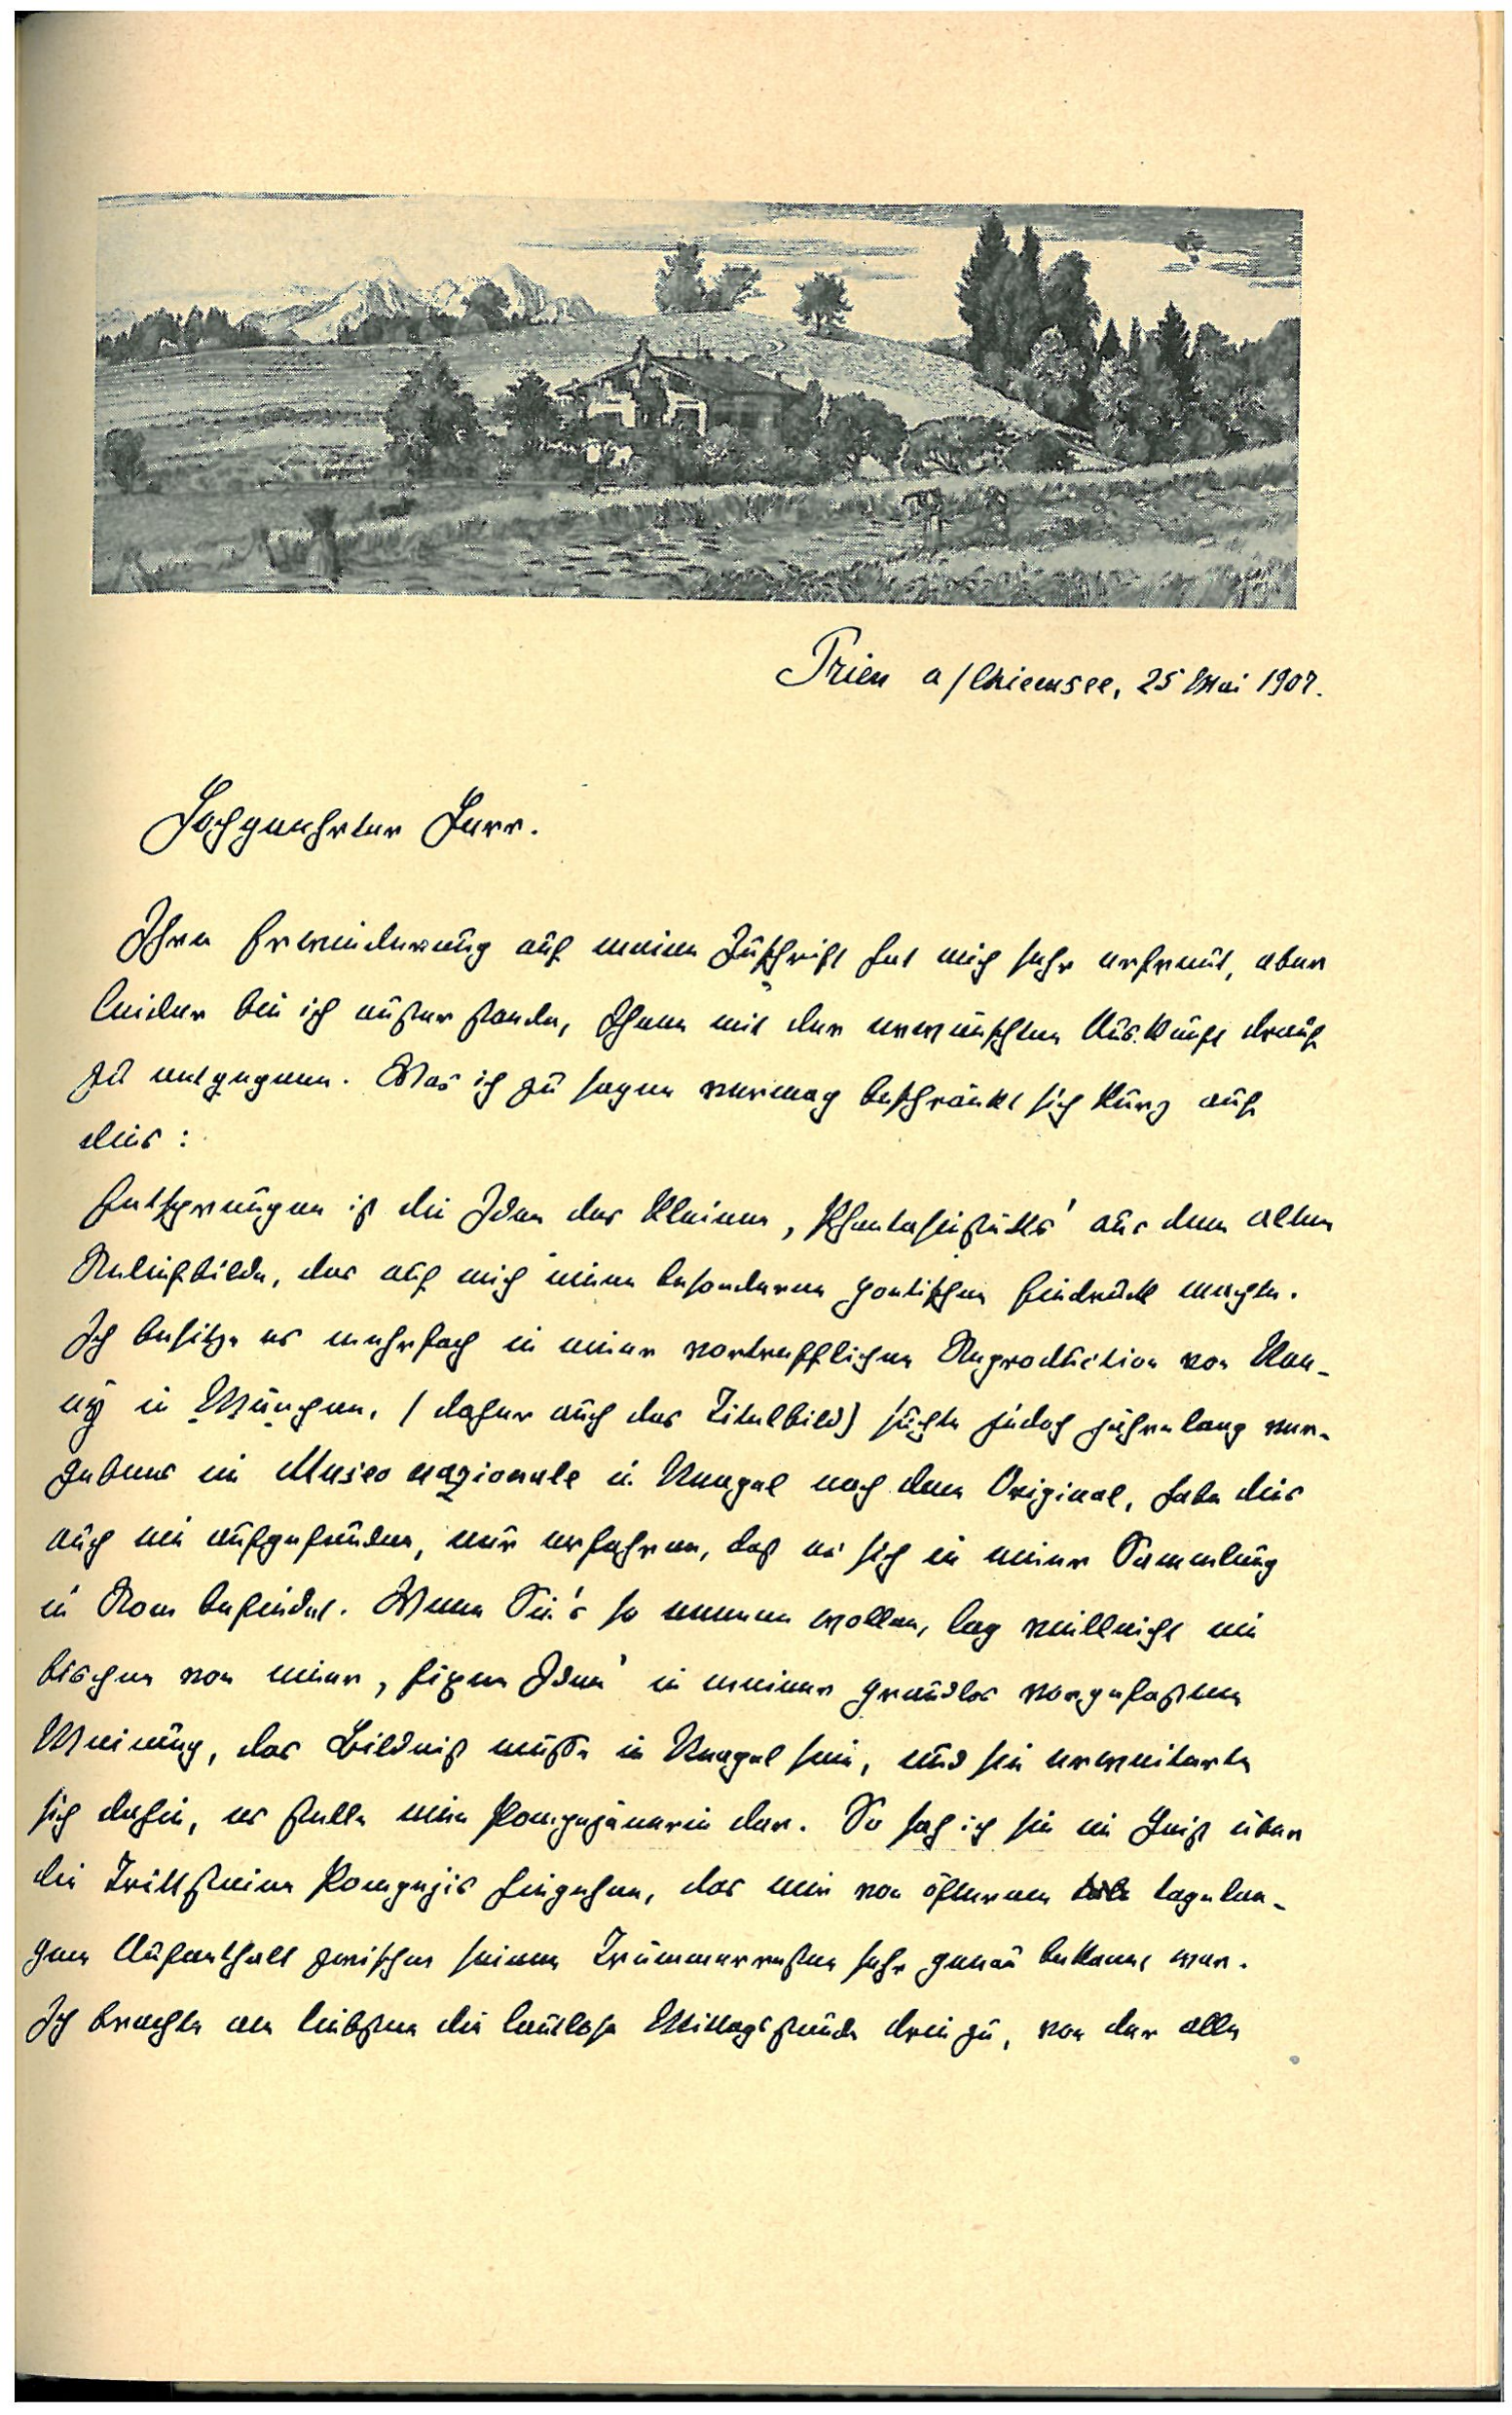 Prien a/Chiemsee, 25 Mai 1907.
Hochgeehrter Herr.
Ihre Erwiderung auf meine Zuschrift hat mich sehr erfreut, aber
leider bin ich außer stande, Ihnen mit der erwünschten Auskunft drauf
zu entgegnen. Was ich zu sagen vermag beschränkt sich kurz auf
dies:
Entsprungen ist die Idee des kleinen ‚Phantasiestücks' aus dem alten
Reliefbilde, das auf mich einen besonderen poetischen Eindruck machte.
Ich besitze es mehrfach in einer vortrefflichen Reproduction von Nan-
ny in München, (daher auch das Titelbild) suchte jedoch jahrelang ver-
gebens im Museo nazionale in Neapel nach dem Original, habe dies
auch nie aufgefunden, nur erfahren, daß es sich in einer Sammlung
in Rom befindet. Wenn Sie's so nennen wollen, lag vielleicht ein
bischen von einer ‚fixen Idee' in meiner grundlos vorgefaßten
Meinung, das Bildniß müsse in Neapel sein, und sie erweiterte
sich dahin, es stelle eine Pompejanerin dar. So sah ich sie im Geist über
die Trittsteine Pompejis hingehen, das mir von öfterem tagelan-
gen Aufenthalt zwischen seinen Trümmerresten sehr genau bekannt war.
Ich brachte am liebsten die lautlose Mittagsstunde drin zu, von der alle